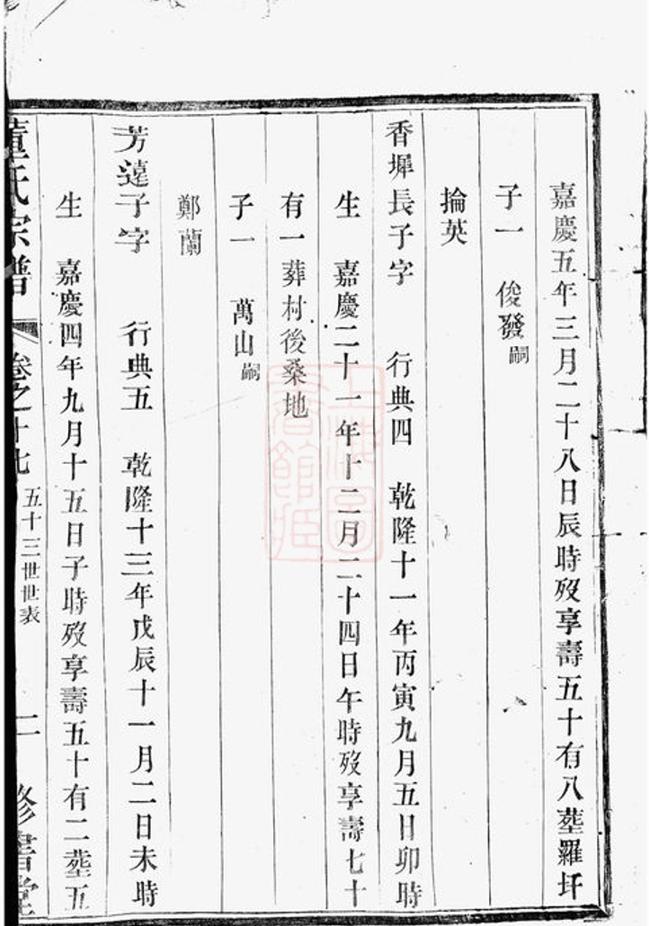 嘉慶五年三月二十八日辰時歿享壽五十有八塟羅圩
子一 俊發嗣
掄英
香墀長子字 行典四 乾隆十一年丙寅九月五日卯時
生 嘉慶二十一年十二月二十四日午時歿享壽七十
有一葬村後桑地
子一 萬山嗣
鄭蘭
芳遠子字 行典五 乾隆十三年戊辰十一月二日未時
生 嘉慶四年九月十五日子時歿享壽五十有二塟五
董氏宗譜 卷之十七 五十三世世表 二 修書堂
上海圖書館藏